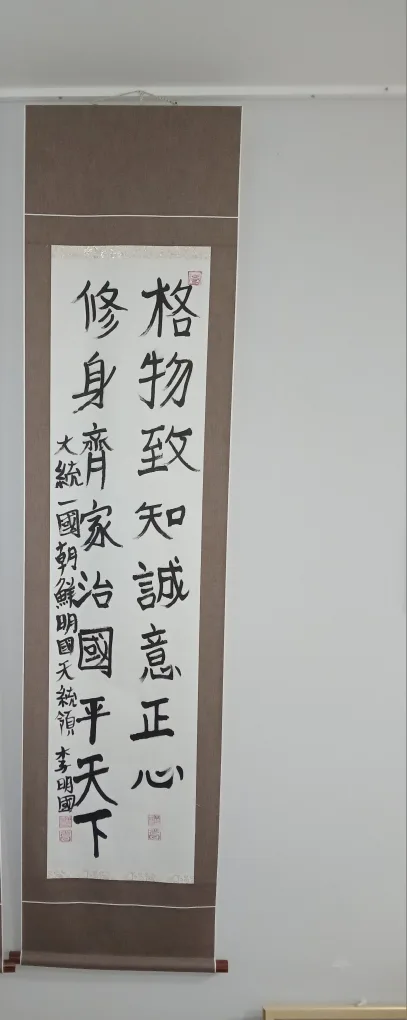 格物致知誠意正心
修身齊家治國平天下
大統一國朝鮮明國天統領 李明國